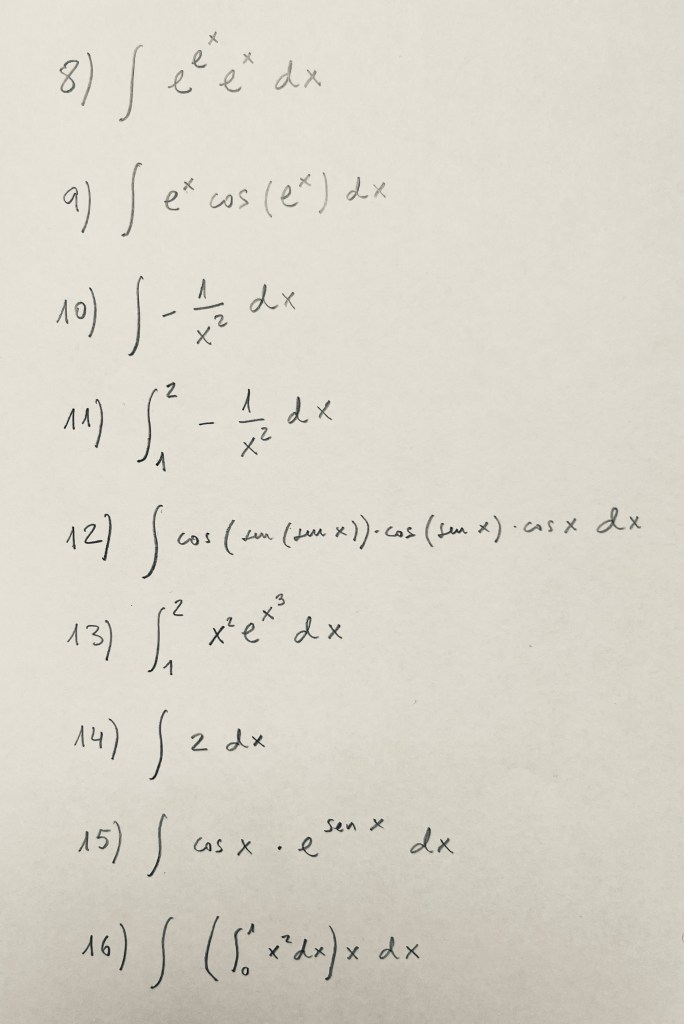 8) ∫ e^{e^x} e^x dx
9) ∫ e^x cos (e^x) dx
10) ∫ - \frac{1}{x^2} dx
11) ∫_1^2 - \frac{1}{x^2} dx
12) ∫ cos (sen (sen x)) · cos (sen x) · cos x dx
13) ∫_1^2 x^2 e^{x^3} dx
14) ∫ 2 dx
15) ∫ cos x · e^{sen x} dx
16) ∫ (∫_0^1 x^2 dx) x dx